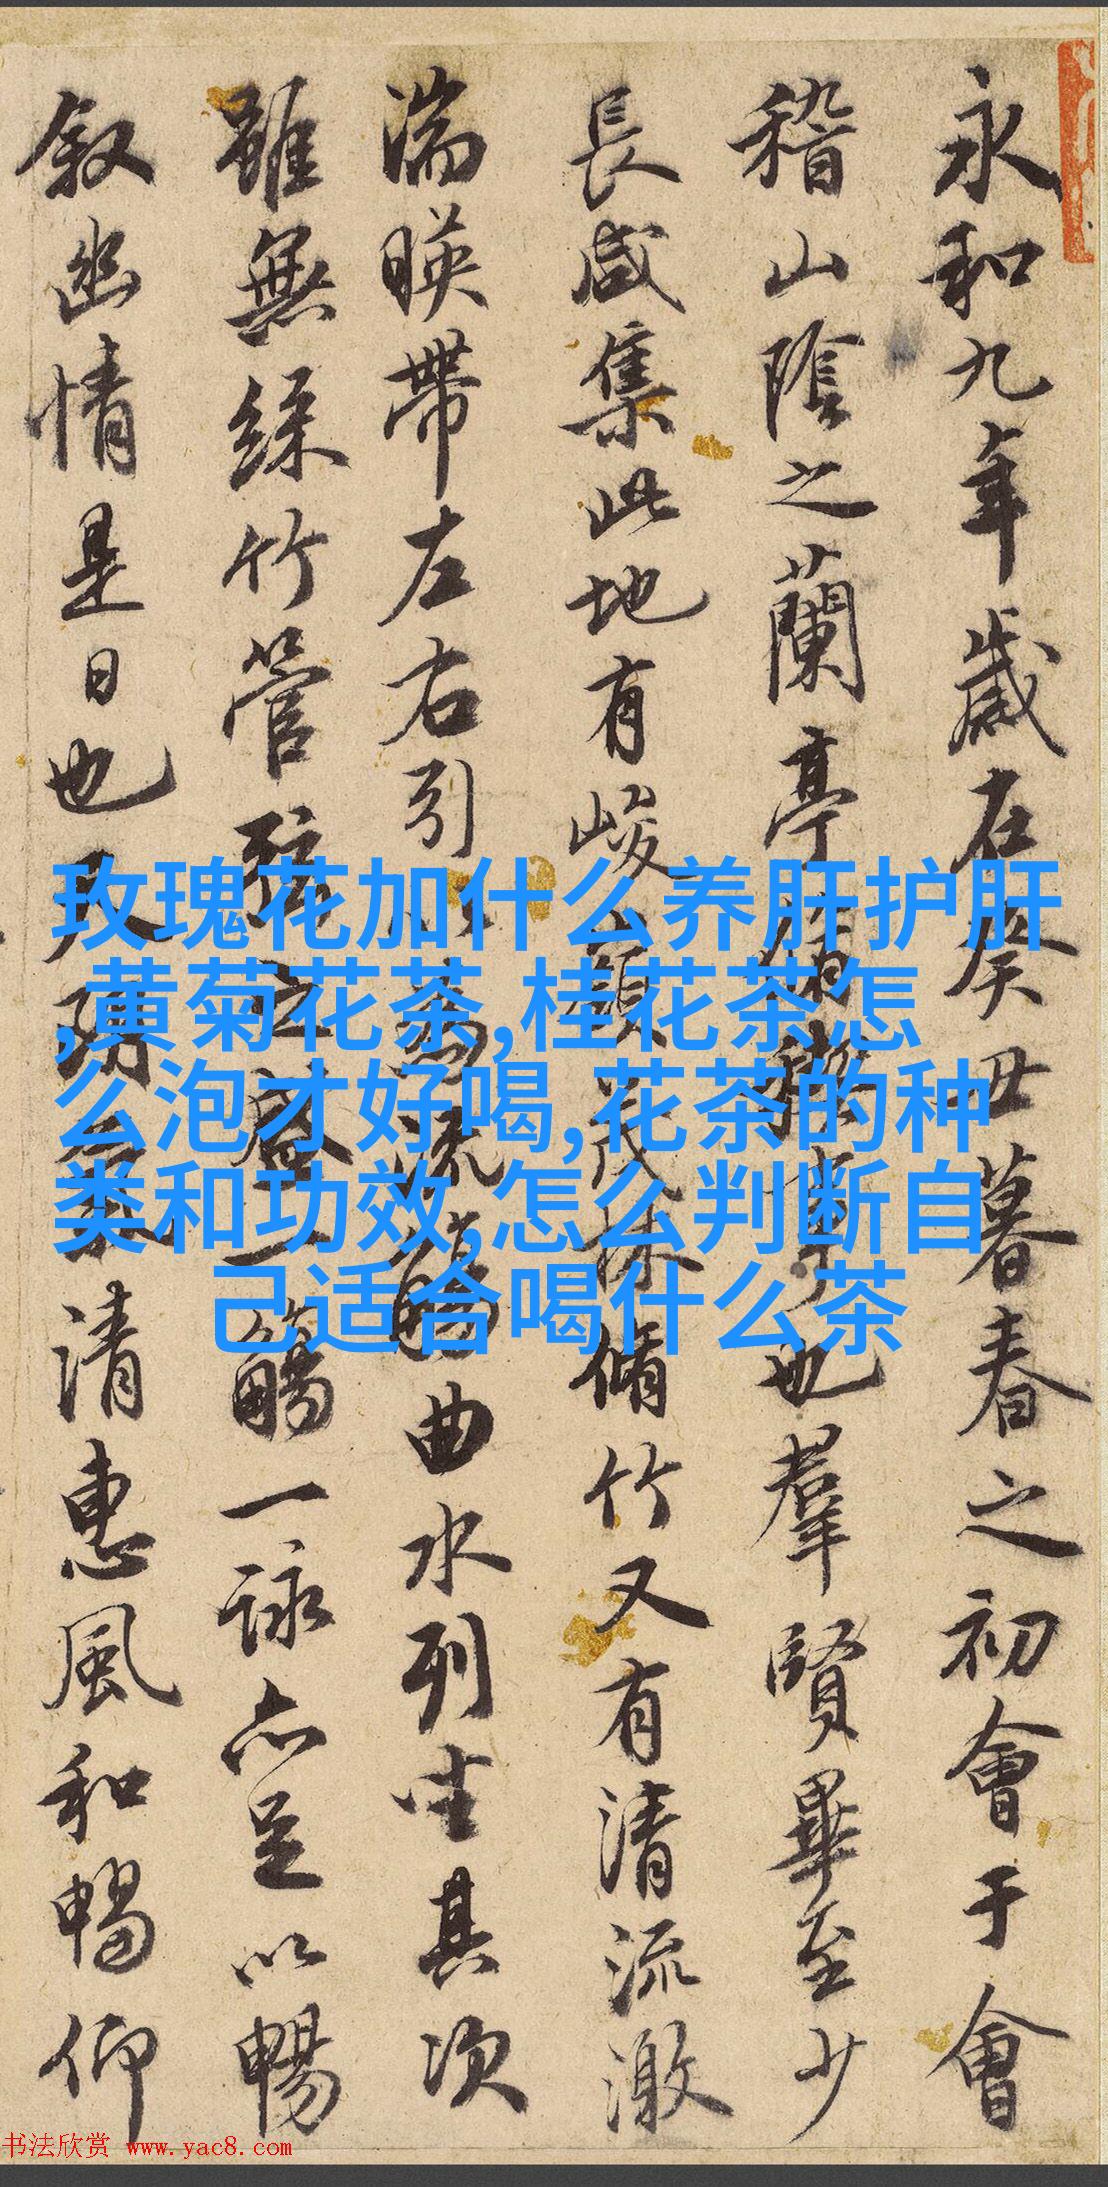 永和九年歲在癸丑暮春之初會于會
稽山陰之蘭亭脩稧事也羣賢畢至少
長咸集此地有峻領茂林脩竹又有清流激
湍暎帶左右引以為流觴曲水列坐其次
雖無絲竹管弦之盛一觴一詠亦足以暢
敘幽情是日也天朗氣清惠風和暢仰
玫瑰花加什么养肝护肝
,黄菊花茶,桂花茶怎
么泡才好喝,花茶的种
类和功效,怎么判断自
己适合喝什么茶
书法欣赏 www.yac8.com